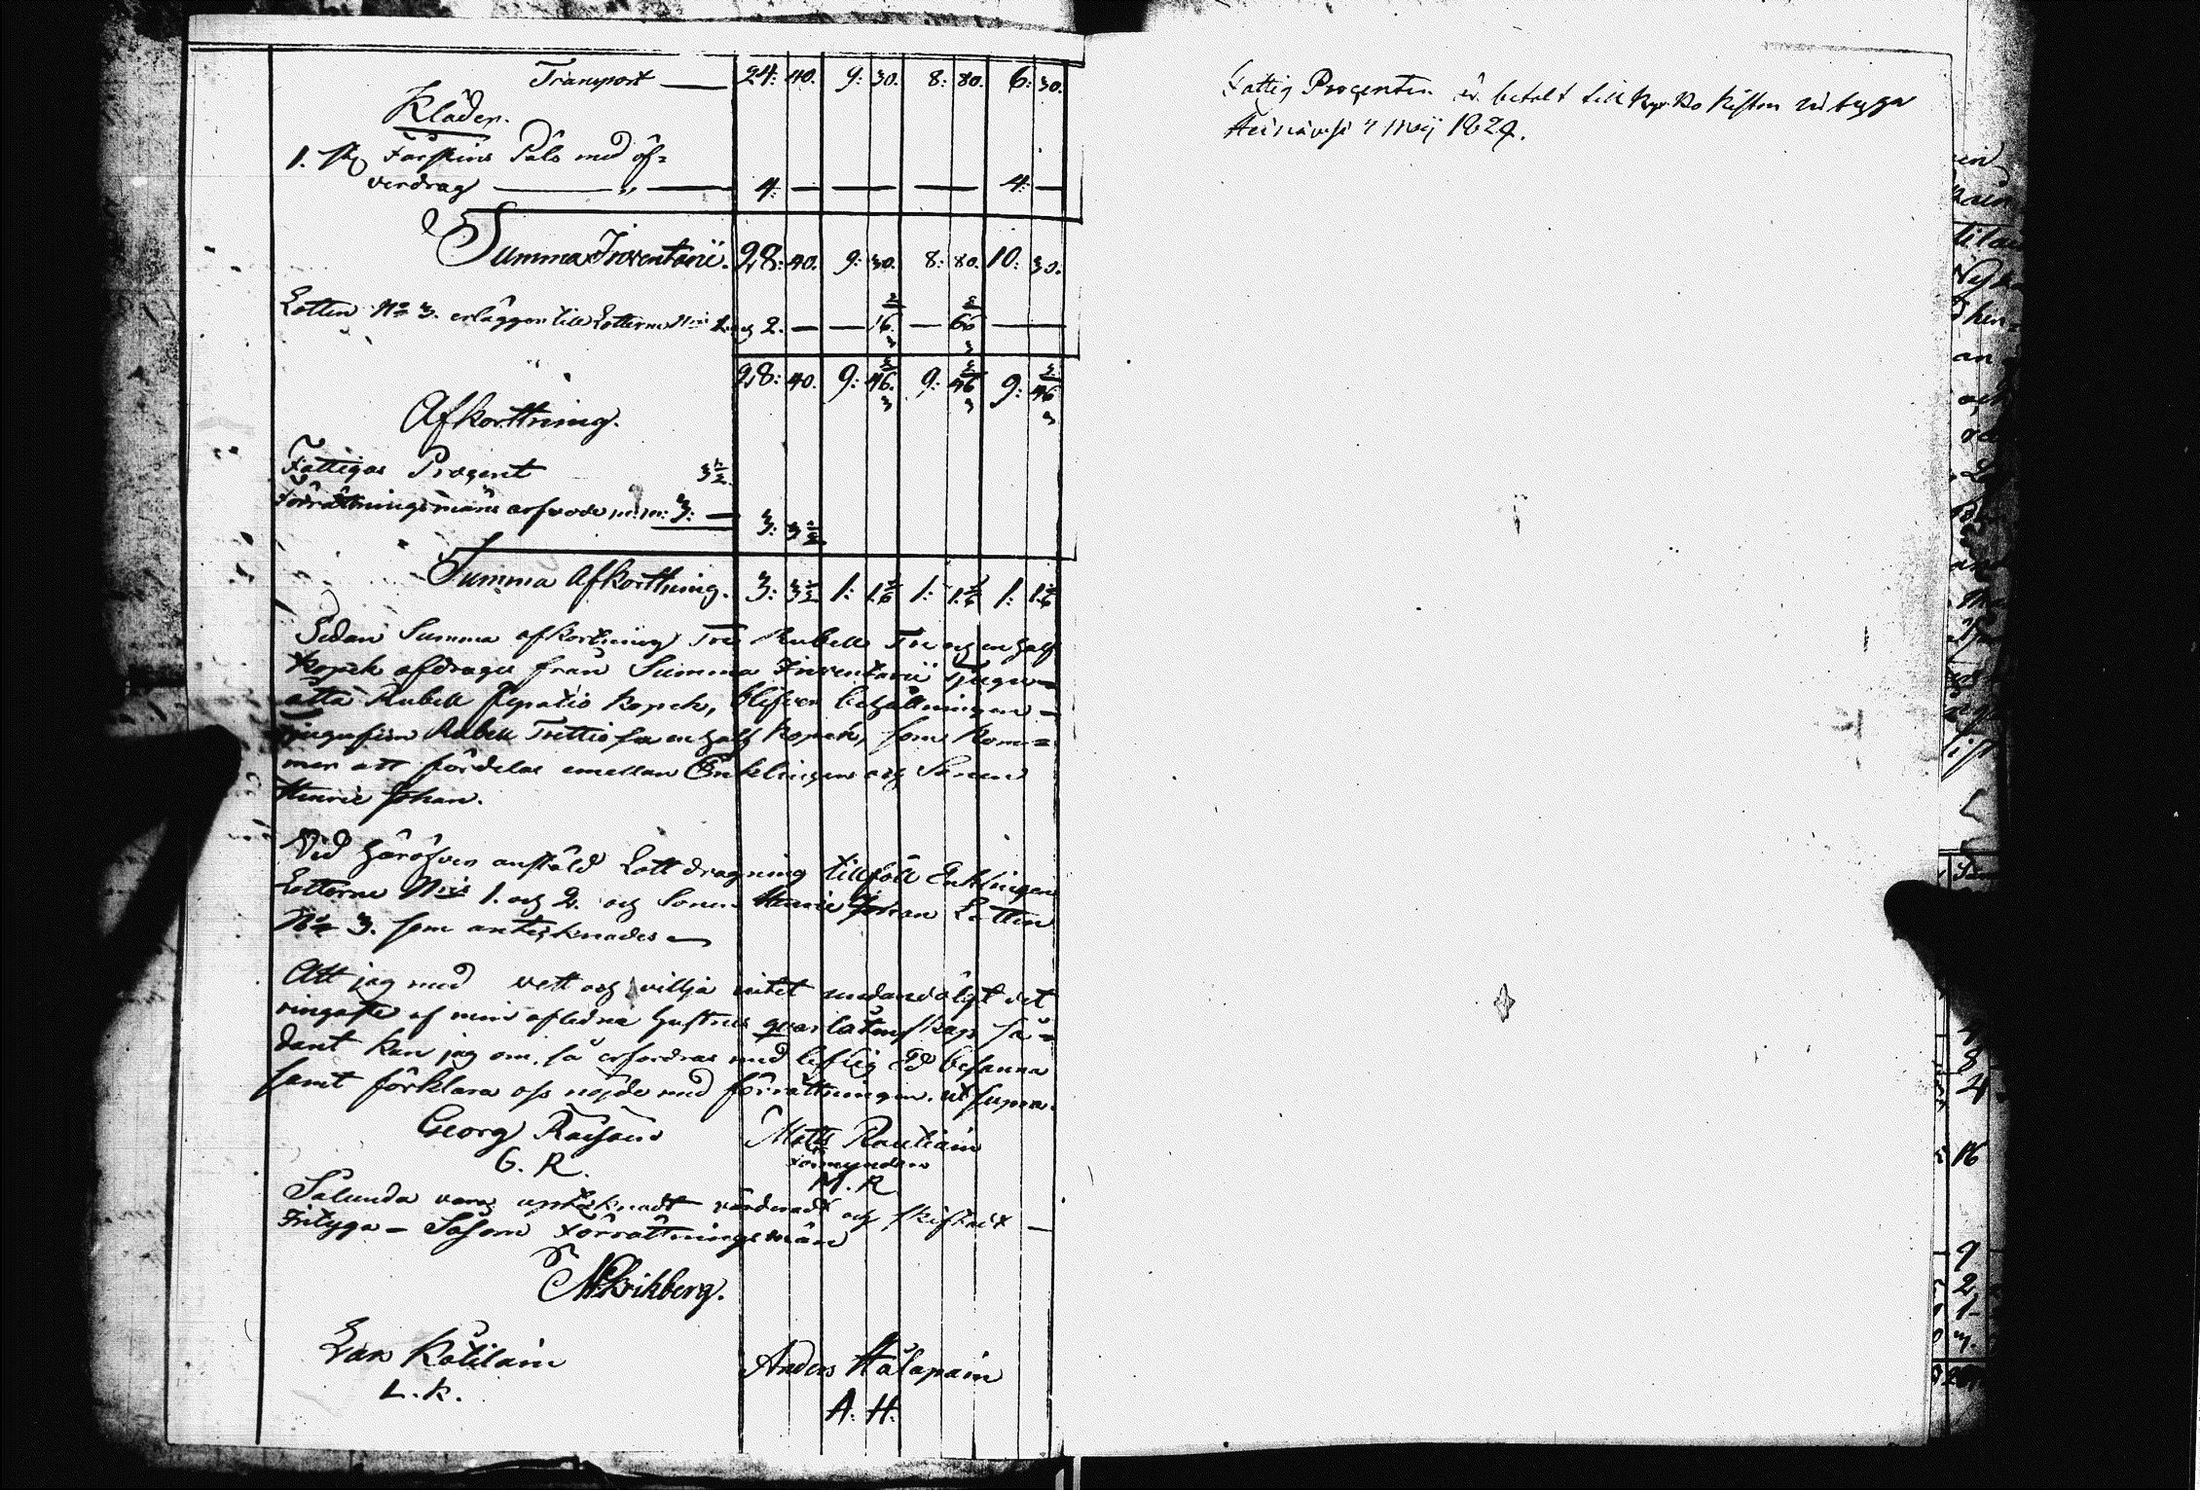 Transport — 24: 40. 9: 30. 8: 80. 6: 30.
Kläder.
1. st Fårskins Päls med öf=
verdrag — " — 4: — — — 4: —
Summa Inventarii. 28: 40. 9: 30. 8: 80. 10: 30.
Lotten No 3. erlägger till Lotterne Nris 1. og 2. — — 16 2/3 — 66 2/3 —
28: 40. 9: 46 2/3 9: 46 2/3 9: 46 2/3
Afkorttning.
Fattigas Procent 3 1/2
Förrättningsmäns arfvode m.m: 3: — 3: 3 1/2
Summa Afkorttning. 3: 3 1/2 1: 1 1/6 1: 1 1/6 1: 1 1/6
Sedan Summa afkortning Tre Rubell Tre og en half
Kopek afdrages från Summa Inventarii Tjugu=
åtta Rubell fyratio kopek, blifver behållningen —
Tjugufem Rubell Trettiosex en half kopek, som kom=
mer att fördelas emellan Enklingen og Sonen
Henric Johan.
Vid häröfver anstäld Lottdragning tillföll Enklingen
Lotterne Nris 1. og 2. og Sonen Henric Johan Lotten
No 3. som antecknades —
Att jag med vett og villja intet undandölgt det
ringaste af min afledna hustrus qvarlåtenskap så=
dant kan jag om så erfordras med liflig Ed besanna
samt förklara oss nöjde med förrättningen. ut supra.
Georg Räisäin Matts Rautiain
G. R. Förmyndare
M. R.
Sålunda vara upteknadt värderadt og skiftadt —
betyga — Såsom Förrättningsmän
Lars Kotilain Anders Halapain
L. K. A. H.
Fattig Procenten är betalt till Kyrko Kistan
Heinävesi 7 Maij 1829.